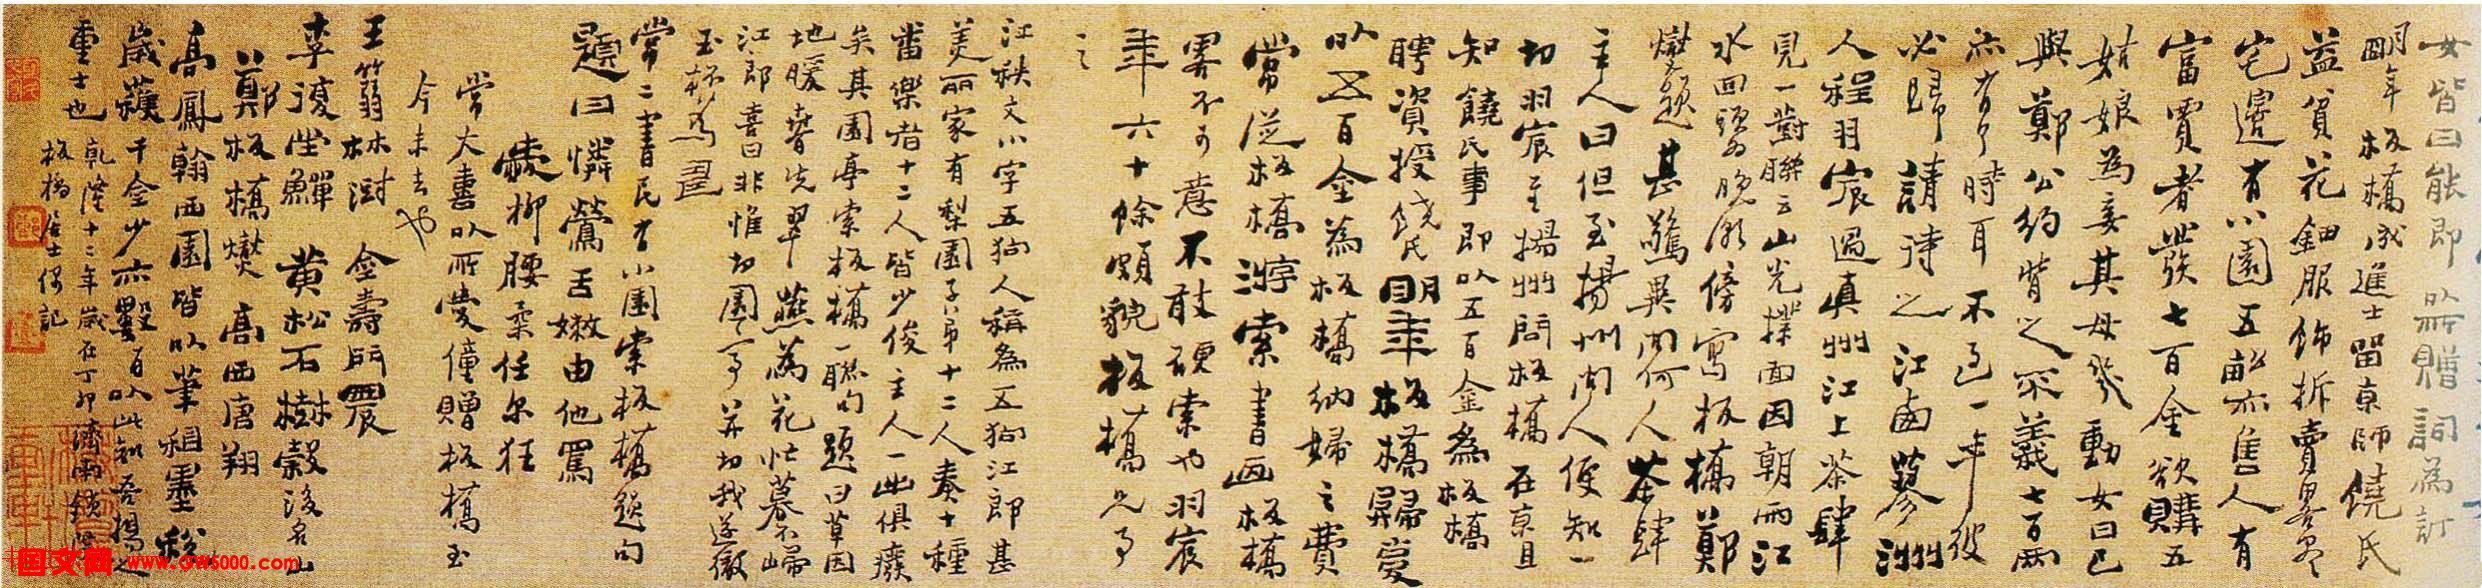 女皆曰能即以所贈詞為訂
明年板橋成進士留京師饒氏
益貧花鈿服飾拆賣略盡
宅邊有小園五畝亦售人有
富賈者發七百金欲購五
姑娘為妾其母幾動女曰已
與鄭公約背之不義七百兩
亦有了時耳不過一年彼
必歸請待之江西蓼洲
人程羽宸過真州江上茶肆
見一對聯云山光撲面因朝雨江
水回頭為晚潮傍寫板橋鄭
燮題甚驚異問何人茶肆
主人曰但至揚州問人便知一
切羽宸至揚州問板橋在京且
知饒氏事即以五百金為板橋
聘資授饒氏明年板橋歸復
以五百金為板橋納婦之費
常從板橋游索書畫板橋
略不可意不敢硬索也羽宸
年六十餘頗貌板橋兄事
之
江秩文小字五狗人稱為五狗江郎甚
美麗家有梨園子弟十二人奏十種
番樂者十二人皆少俊主人一出俱廢
矣其園亭索板橋一聯句題曰草因
地暖春先翠燕為花忙暮不歸
江郎喜曰非惟切園亭并切我遂徹
玉杯為壽
常二書民有小園索板橋題句
題曰憐鶯舌嫩由他罵
愛柳腰柔任爾狂
常大喜以所愛僮贈板橋至
今未去也
王篛林澍 金壽門農
李復堂鱓 黃松石樹穀後名山
鄭板橋燮 高西唐翔
高鳳翰西園皆以筆租墨稅
歲獲千金少亦數百以此知吾揚之
重士也
乾隆十二年歲在丁卯濟南鎖院
板橋居士偶記
国文网 www.GW5000.com